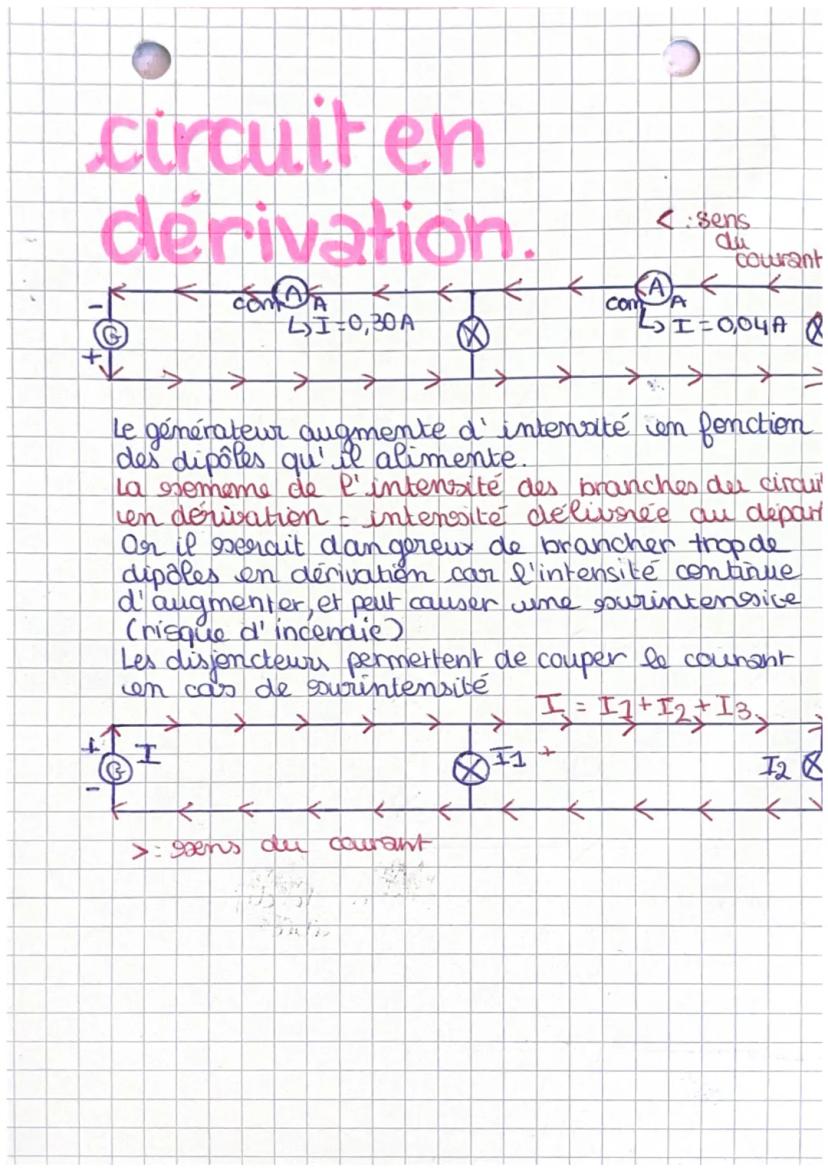 circuit en
dérivation.
< : sens
du
courant
- com A A com A A
↳ I = 0,30 A
↳ I = 0,04 A
G
+
Le générateur augmente d'intensité en fonction
des dipôles qu'il alimente.
La somme de l'intensité des branches du circui
en dérivation = intensité délivrée au départ
Or il serait dangereux de brancher trop de
dipôles en dérivation car l'intensité continue
d'augmenter, et peut causer une sourintensice
(risque d'incendie)
Les disjencteurs permettent de couper le courant
en cas de sourintensité
I = I1 + I2 + I3
+ G - I
I1 +
I2
> : sens du courant